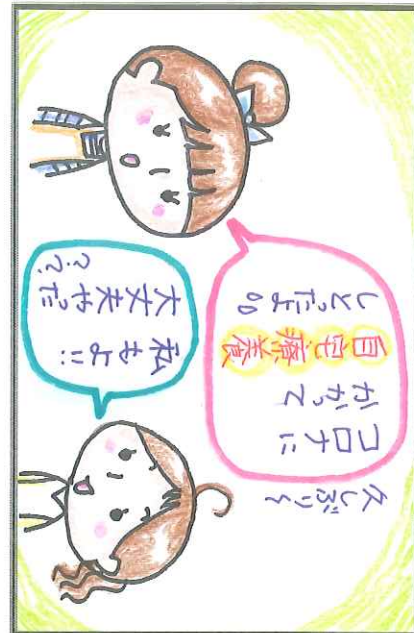 久しぶり〜
コロナに
かかって
自宅療養
しとったよ。。
私もよ!!
大丈夫やった
??